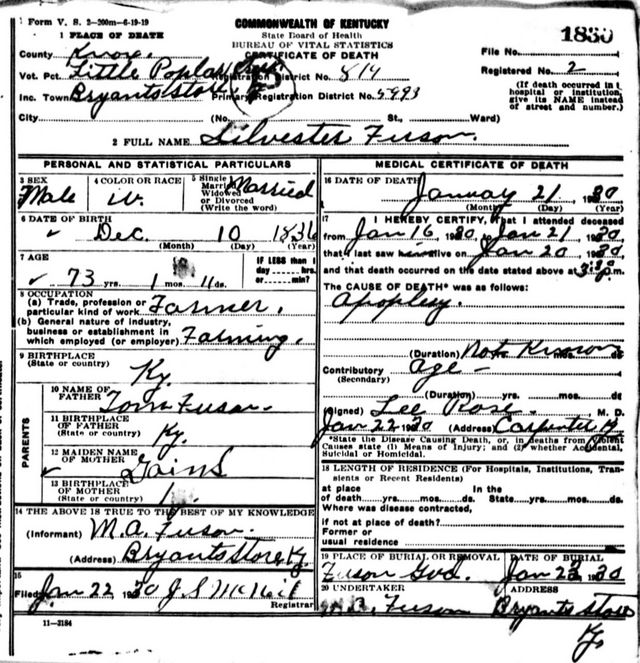 Form V. S. 2-200m-6-19-19
COMMONWEALTH OF KENTUCKY
State Board of Health
BUREAU OF VITAL STATISTICS
CERTIFICATE OF DEATH
1 PLACE OF DEATH
County Knox
Vot. Pct. Little Poplar Registration District No. 814
Inc. Town Bryants Store Primary Registration District No. 5993
City (No. St., Ward)
File No. 1830
Registered No. 2
(If death occurred in a hospital or institution, give its NAME instead of street and number.)
2 FULL NAME Silvester Fuson
PERSONAL AND STATISTICAL PARTICULARS
3 SEX
Male
4 COLOR OR RACE
W.
5 Single Married Widowed or Divorced (Write the word)
Married
6 DATE OF BIRTH
Dec. 10 1836
(Month) (Day) (Year)
7 AGE
73 yrs. 1 mos. 11 ds.
IF LESS than 1 day hrs. or min.?
8 OCCUPATION
(a) Trade, profession or particular kind of work Farmer
(b) General nature of industry, business or establishment in which employed (or employer) Farming
9 BIRTHPLACE
(State or country)
Ky.
PARENTS
10 NAME OF FATHER
Tom Fuson
11 BIRTHPLACE OF FATHER
(State or country)
Ky.
12 MAIDEN NAME OF MOTHER
Gains
13 BIRTHPLACE OF MOTHER
(State or country)
14 THE ABOVE IS TRUE TO THE BEST OF MY KNOWLEDGE
(Informant) M.A. Fuson
(Address) Bryants Store, Ky.
15
Filed Jan 22 1920 J.S. McNeil
Registrar
11-3184
MEDICAL CERTIFICATE OF DEATH
16 DATE OF DEATH
January 21, 1920
(Month) (Day) (Year)
17 I HEREBY CERTIFY, that I attended deceased
from Jan 16 1920 to Jan 21 1920
that I last saw alive on Jan 20 1920
and that death occurred on the date stated above at 3:30 P.m.
The CAUSE OF DEATH* was as follows:
apoplexy.
(Duration) Not Known
Contributory age
(Secondary)
(Duration) yrs. mos. ds.
(Signed) Lee Rose M. D.
Jan 22 1920 (Address) Carpenter Ky
*State the Disease Causing Death, or, in deaths from Violent Causes state (1) Means of Injury; and (2) whether Accidental, Suicidal or Homicidal.
18 LENGTH OF RESIDENCE (For Hospitals, Institutions, Transients or Recent Residents)
at place of death yrs. mos. ds. In the State yrs. mos. ds.
Where was disease contracted,
if not at place of death?
Former or usual residence
19 PLACE OF BURIAL OR REMOVAL
Fuson Gvd.
DATE OF BURIAL
Jan 23 1920
20 UNDERTAKER
Fuson
ADDRESS
Bryants Store
Ky.